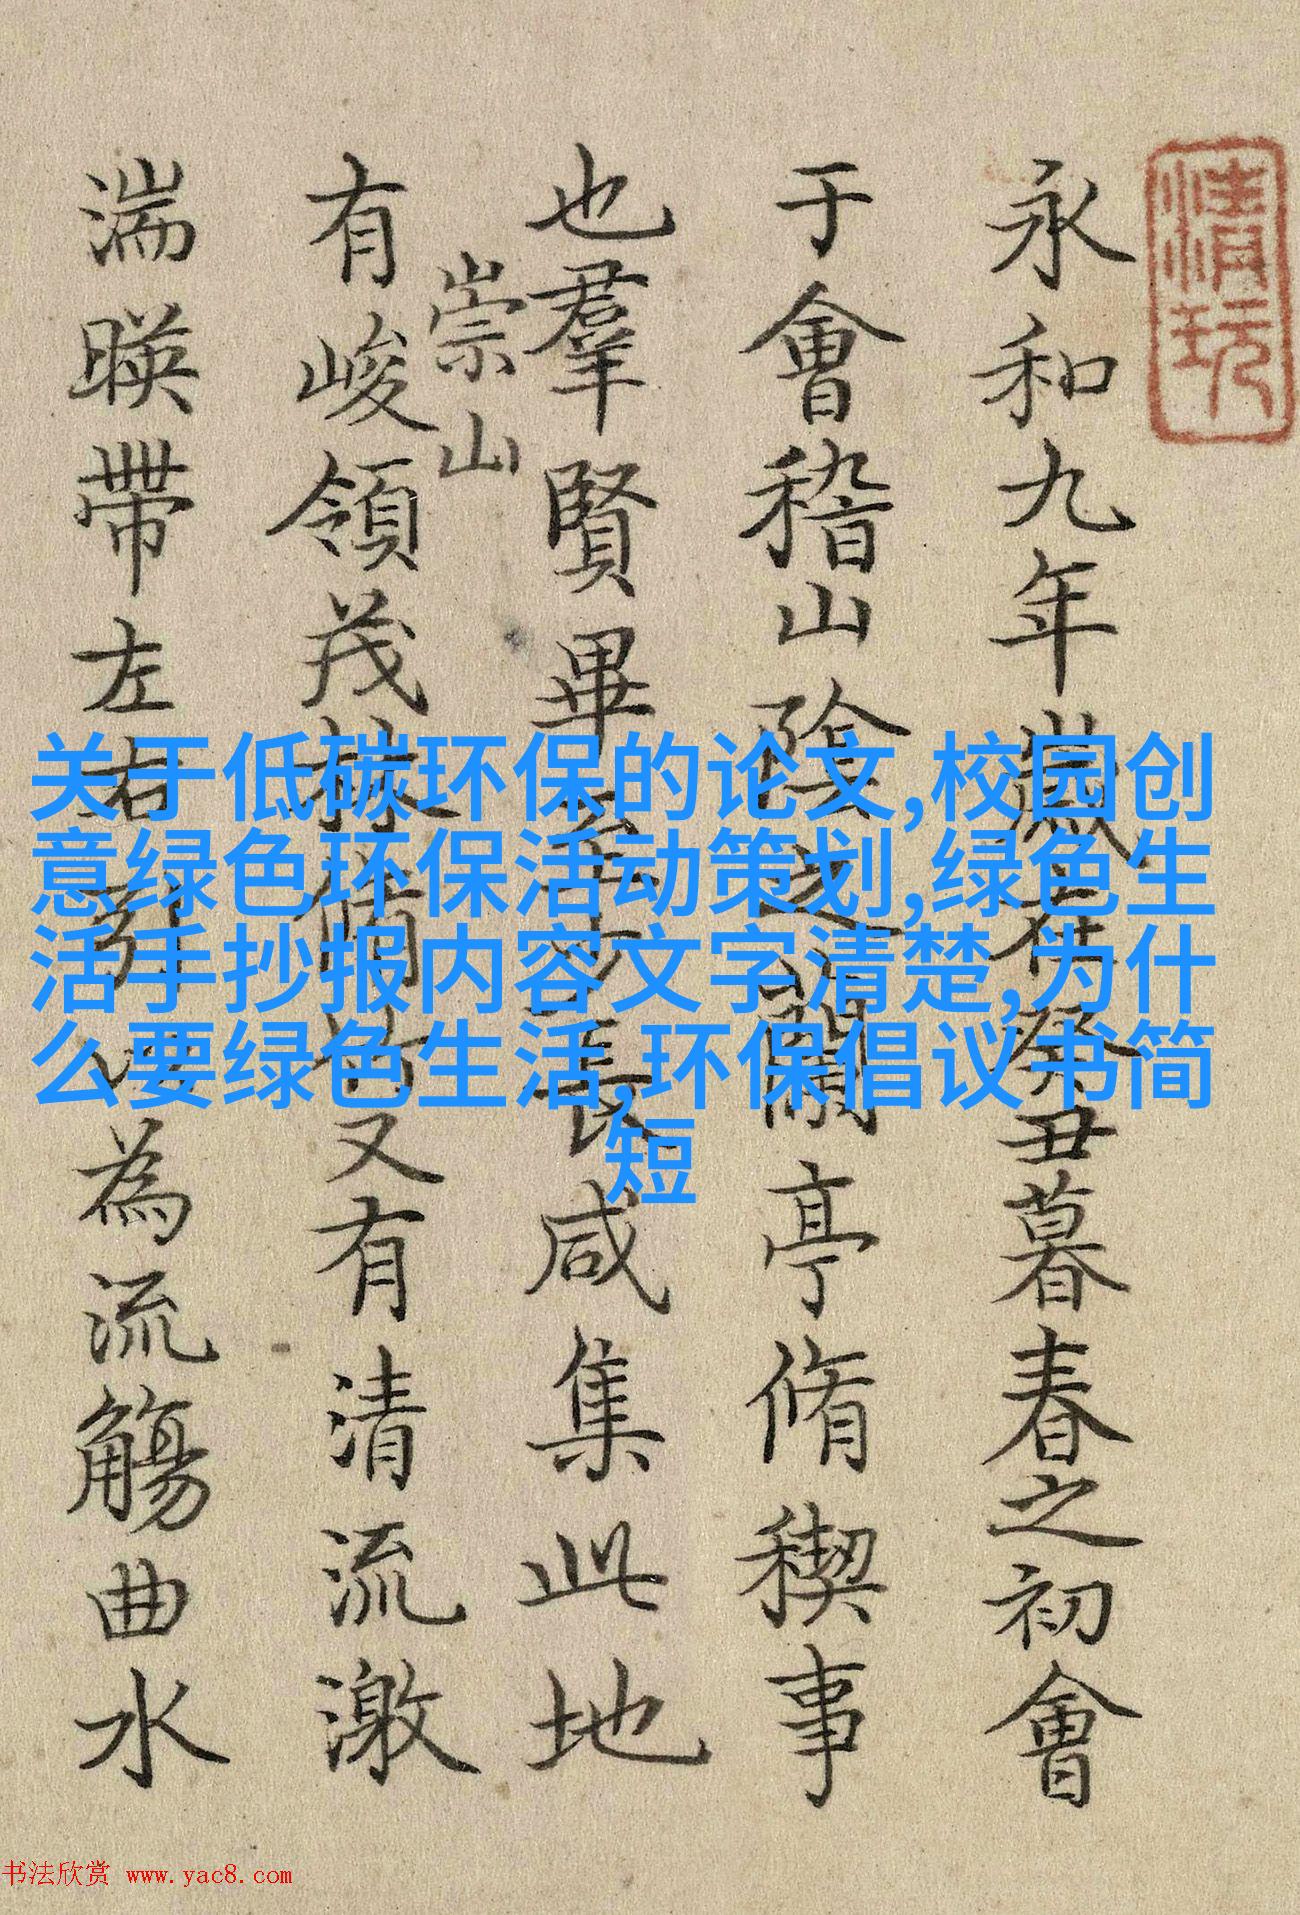 清玩
永和九年歲在癸丑暮春之初會
于會稽山陰之蘭亭脩稧事
也羣賢畢至少長咸集此地
崇山
有峻領茂林脩竹又有清流激
湍暎帶左右引以為流觴曲水
关于低碳环保的论文,校园创
意绿色环保活动策划,绿色生
活手抄报内容文字清楚,为什
么要绿色生活,环保倡议书简
短
书法欣赏 www.yac8.com